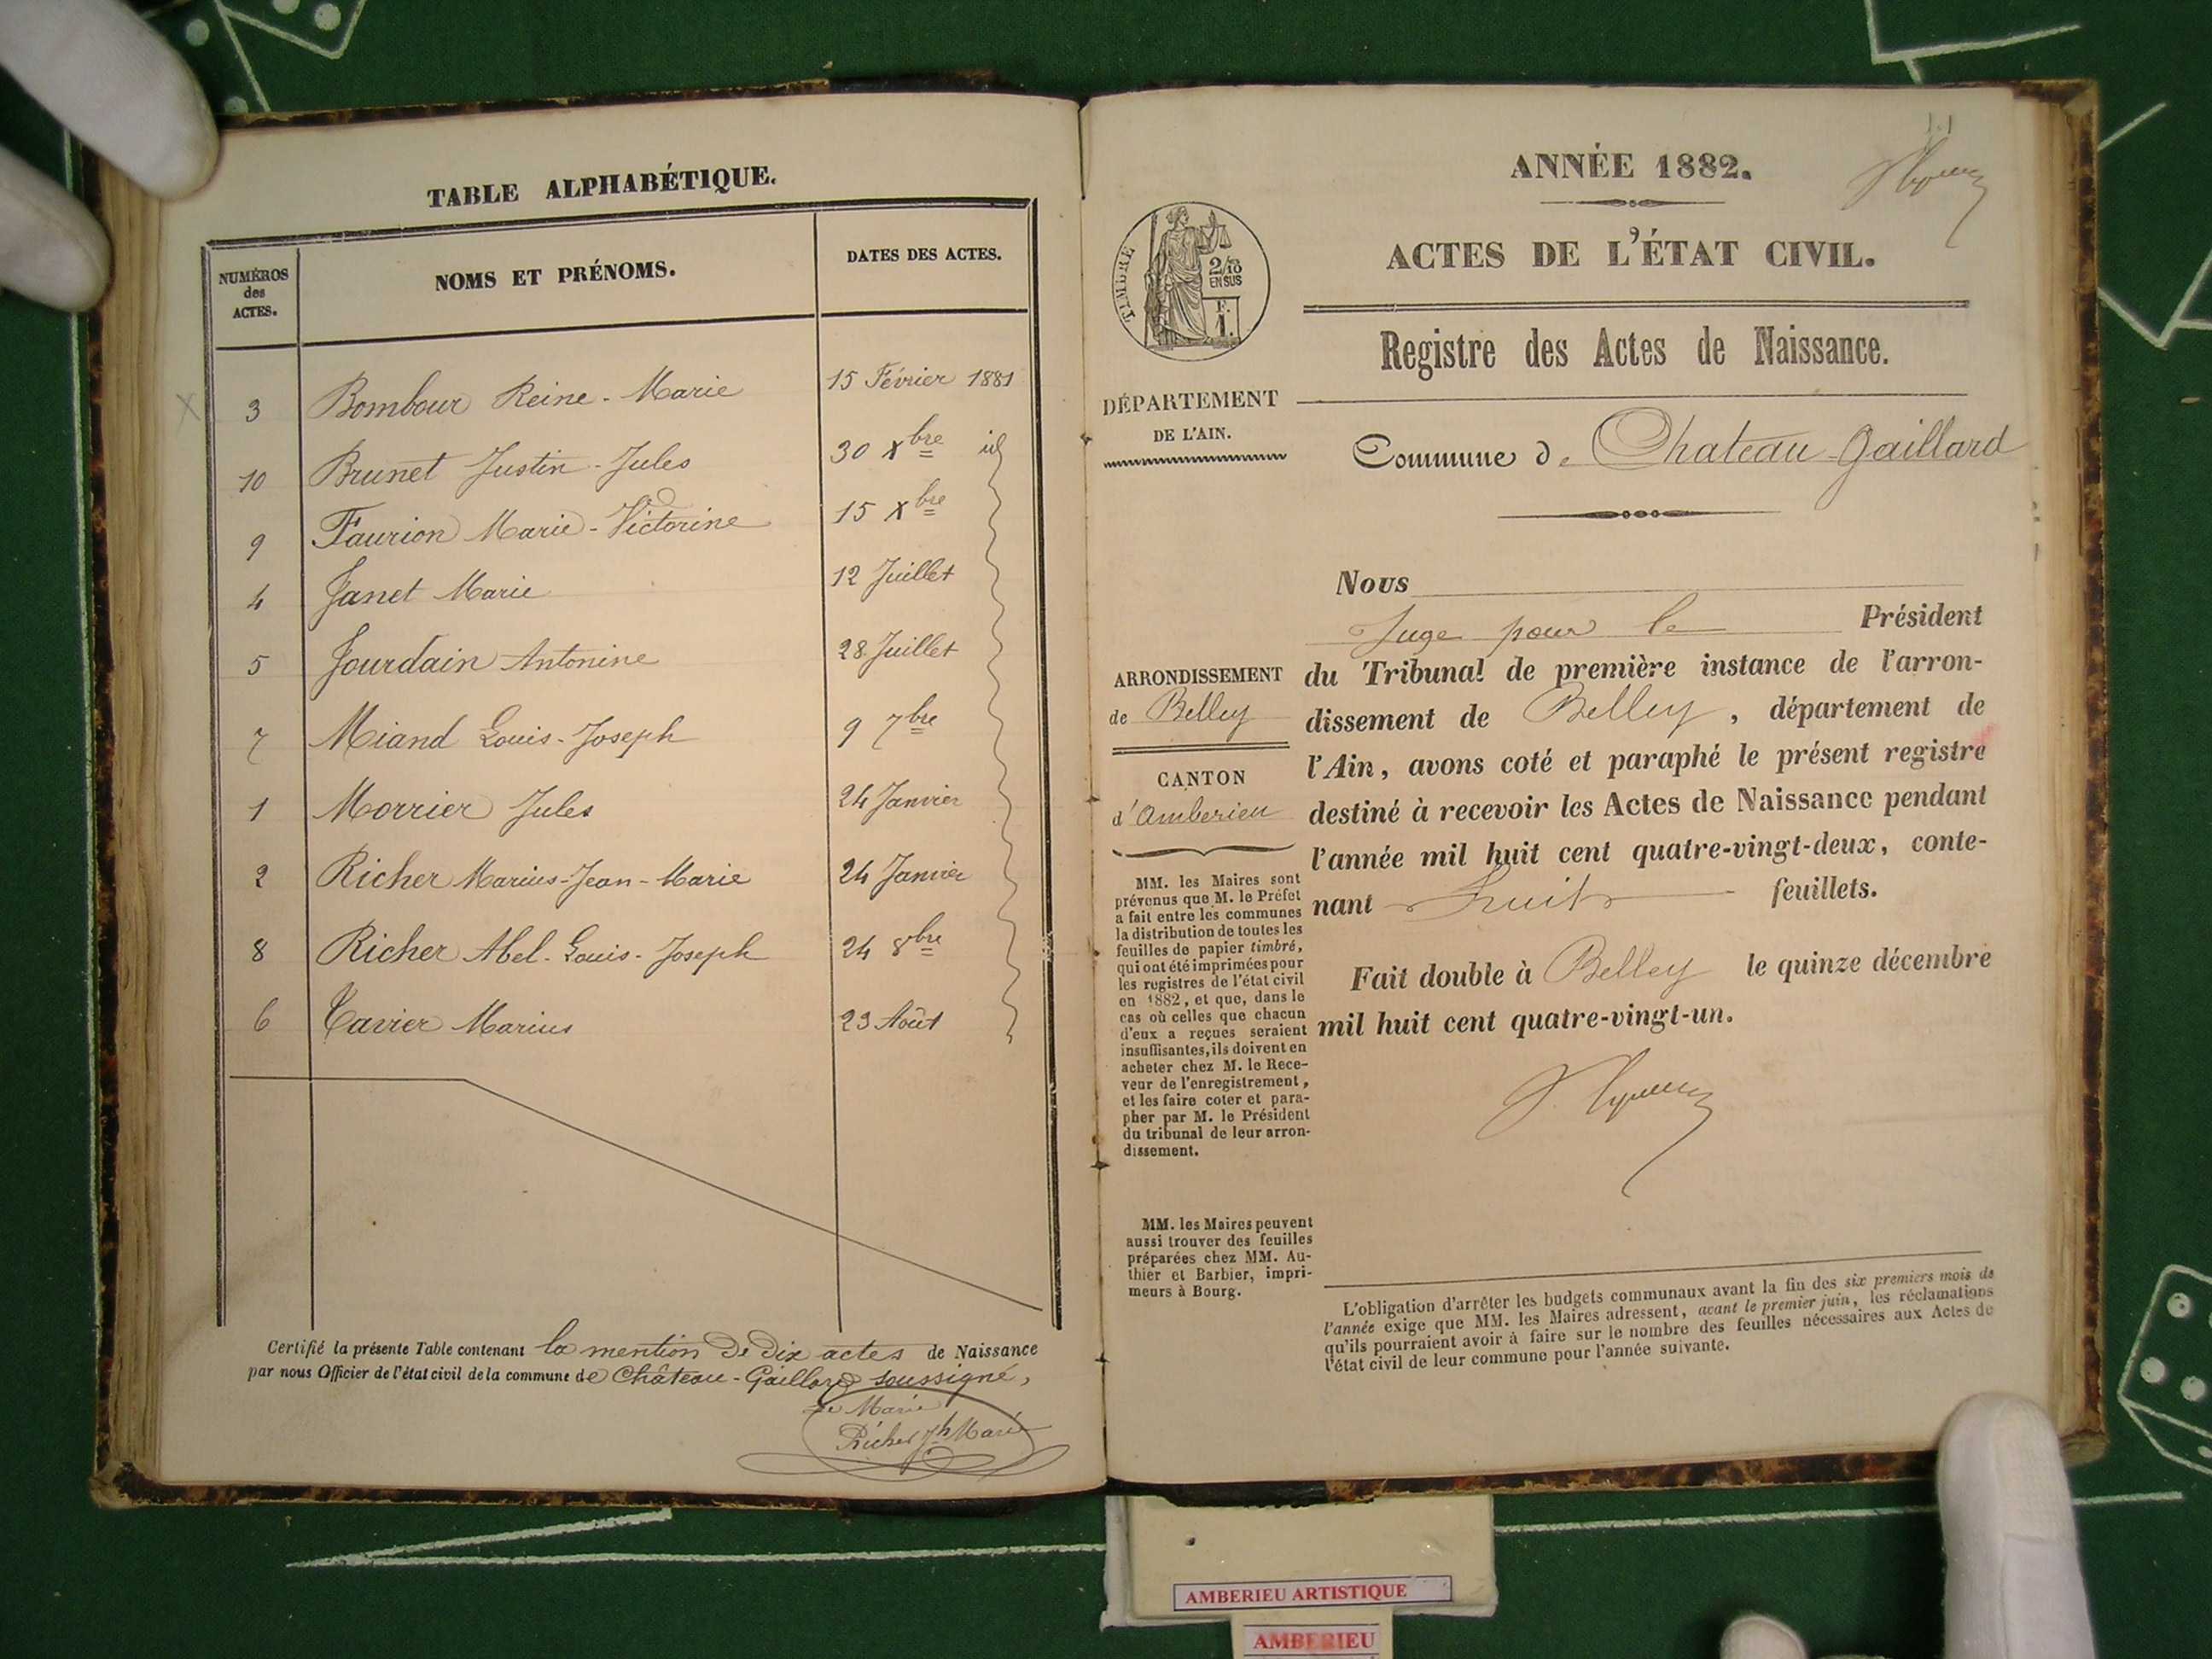 TABLE ALPHABÉTIQUE.
NUMÉROS des ACTES.
NOMS ET PRÉNOMS.
DATES DES ACTES.
3 Bombour Reine-Marie 15 Février 1881
10 Brunet Justin-Jules 30 Xbre id
9 Faurion Marie-Victorine 15 Xbre
4 Janet Marie 12 Juillet
5 Jourdain Antonine 28 Juillet
7 Miand Louis-Joseph 9 7bre
1 Morrier Jules 24 Janvier
2 Richer Marius-Jean-Marie 24 Janvier
8 Richer Abel-Louis-Joseph 24 8bre
6 Tavier Marius 23 Août
Certifié la présente Table contenant la mention de dix actes de Naissance
par nous Officier de l'état civil de la commune de Château-Gaillard soussigné,
Le Marie
Richer Jh Marie
ANNÉE 1882.
ACTES DE L'ÉTAT CIVIL.
TIMBRE
2/10
EN SUS
F.
1.
Registre des Actes de Naissance.
DÉPARTEMENT
DE L'AIN.
Commune de Chateau-Gaillard
Nous
Juge pour le Président
du Tribunal de première instance de l'arron-
dissement de Belley, département de
l'Ain, avons coté et paraphé le présent registre
destiné à recevoir les Actes de Naissance pendant
l'année mil huit cent quatre-vingt-deux, conte-
nant huit feuillets.
Fait double à Belley le quinze décembre
mil huit cent quatre-vingt-un.
ARRONDISSEMENT
de Belley
CANTON
d'Amberieu
MM. les Maires sont
prévenus que M. le Préfet
a fait entre les communes
la distribution de toutes les
feuilles de papier timbré,
qui ont été imprimées pour
les registres de l'état civil
en 1882, et que, dans le
cas où celles que chacun
d'eux a reçues seraient
insuffisantes, ils doivent en
acheter chez M. le Rece-
veur de l'enregistrement,
et les faire coter et para-
pher par M. le Président
du tribunal de leur arron-
dissement.
MM. les Maires peuvent
aussi trouver des feuilles
préparées chez MM. Au-
thier et Barbier, impri-
meurs à Bourg.
L'obligation d'arrêter les budgets communaux avant la fin des six premiers mois de
l'année exige que MM. les Maires adressent, avant le premier juin, les réclamations
qu'ils pourraient avoir à faire sur le nombre des feuilles nécessaires aux Actes de
l'état civil de leur commune pour l'année suivante.
AMBERIEU ARTISTIQUE
AMBERIEU